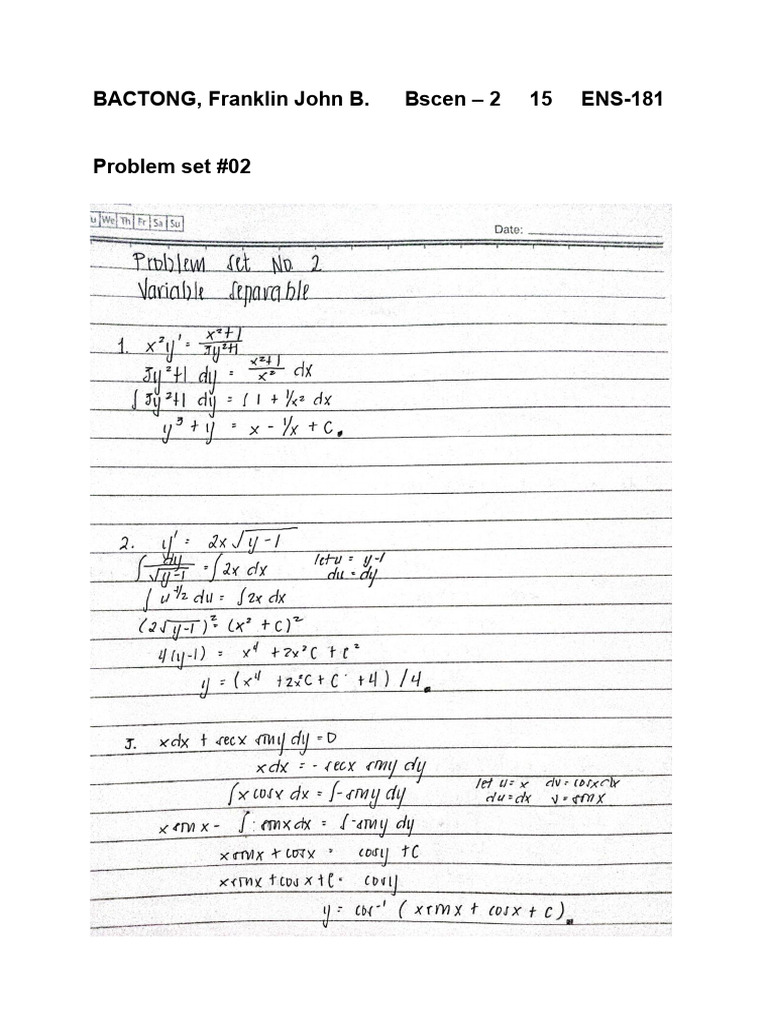 BACTONG, Franklin John B. Bscen – 2 15 ENS-181
Problem set #02
u We Th Fr Sa Su
Date:
Problem set No. 2
Variable separable
1. x²y' = x²+1 / 3y²+1
3y²+1 dy = x²+1 / x² dx
∫ 3y²+1 dy = ∫ 1 + 1/x² dx
y³ + y = x - 1/x + C.
2. y' = 2x √(y-1)
∫ dy / √(y-1) = ∫ 2x dx let u = y-1
du = dy
∫ u^-1/2 du = ∫ 2x dx
(2√(y-1))² = (x² + C)²
4(y-1) = x⁴ + 2x²C + C²
y = (x⁴ + 2x²C + C + 4) / 4.
3. xdx + secx siny dy = 0
xdx = - secx siny dy
∫ x cosx dx = ∫ -siny dy let u = x dv = cosxdx
du = dx v = sinx
x sinx - ∫ sinx dx = ∫ -siny dy
xsinx + cosx = cosy + C
xsinx + cosx + C = cosy
y = cos⁻¹ ( xsinx + cosx + C ).